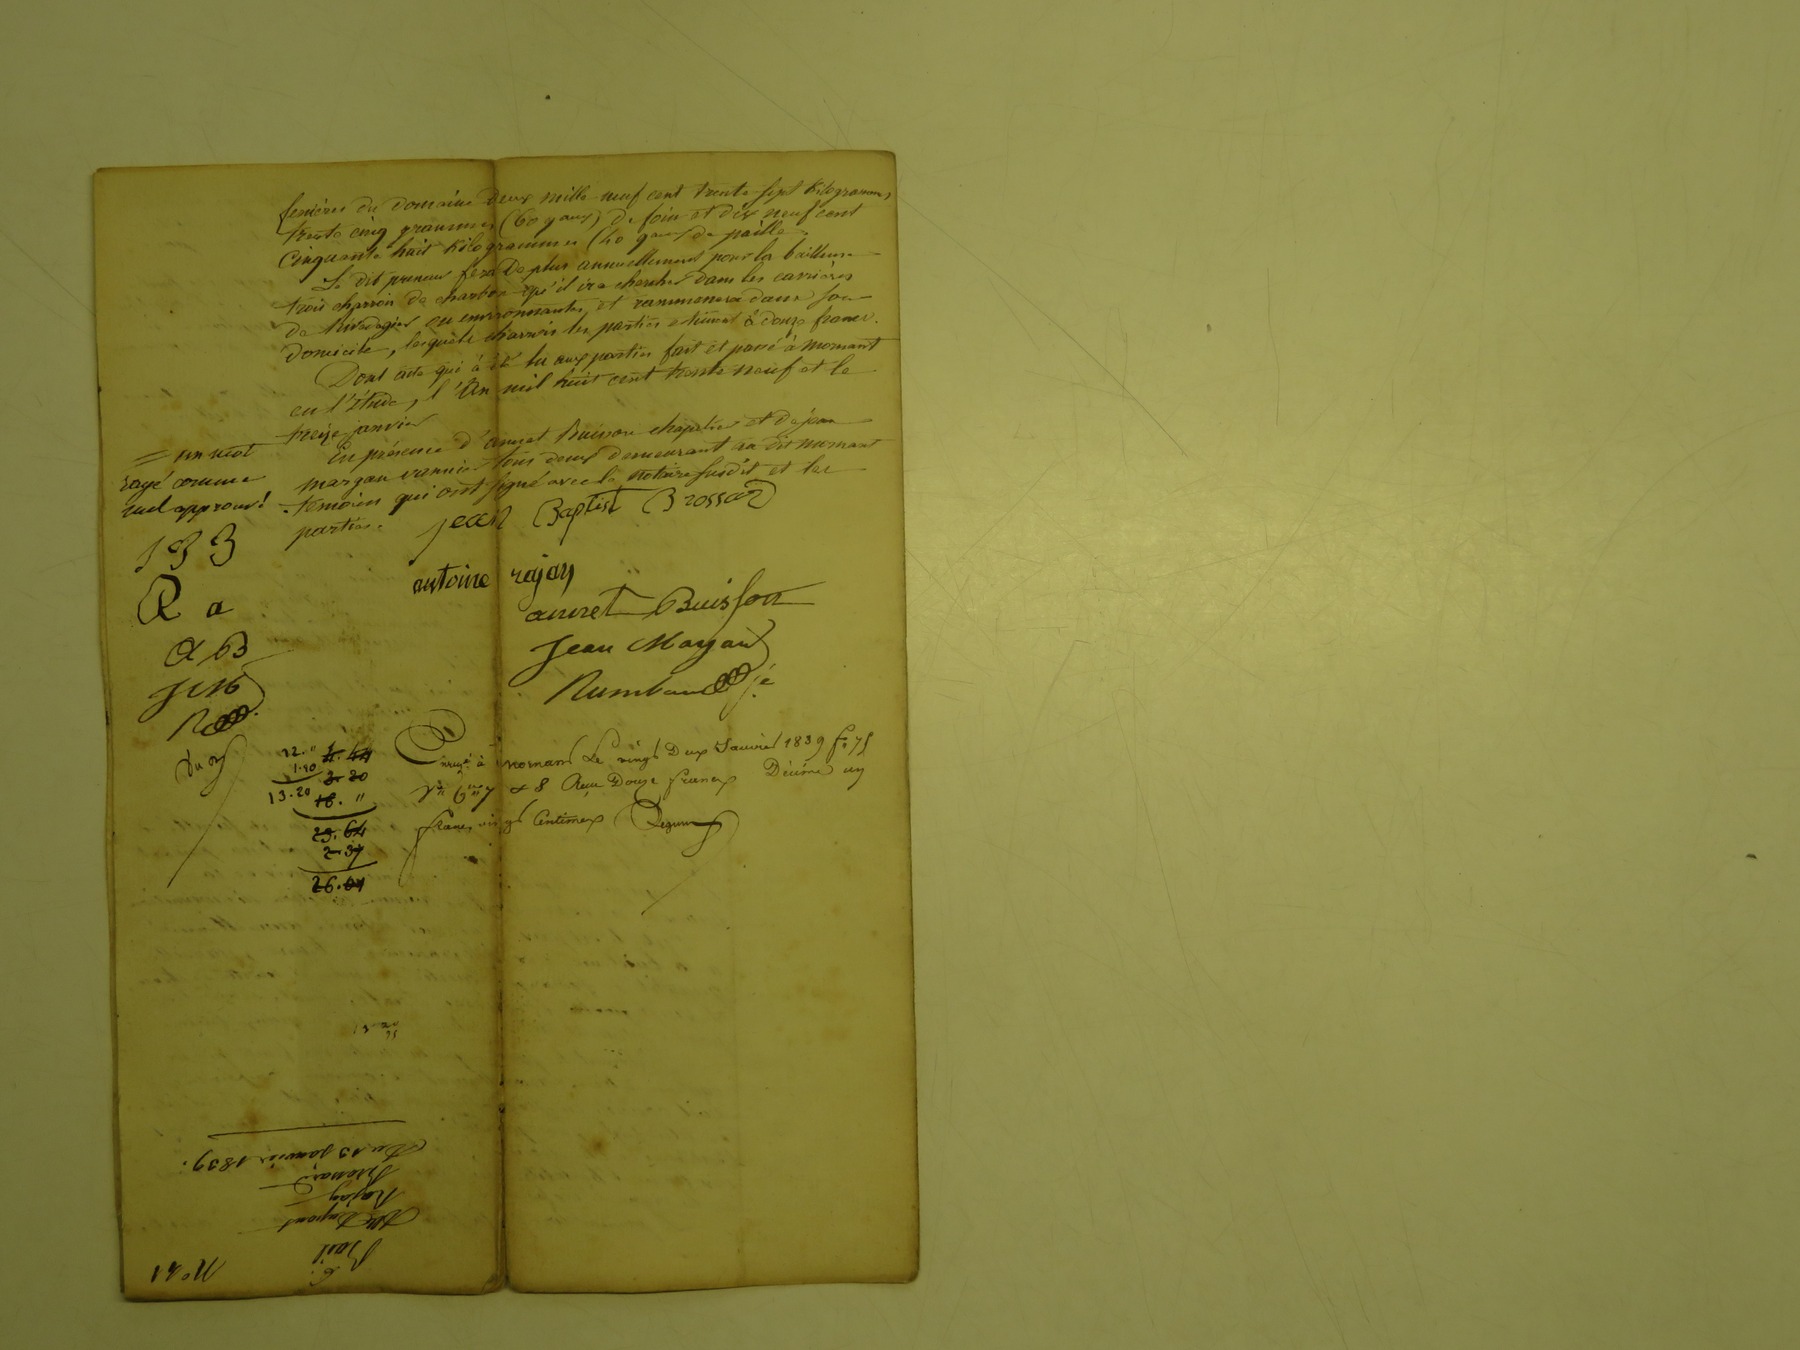 fenières du domaine deux mille neuf cent trente sept Kilogrammes
trente cinq grammes (60 qaux) de foin et dix neuf cent
cinquante huit Kilogrammes (40 qaux) de paille.
Le dit preneur fera de plus annuellement pour la bailleuse
trois charrois de charbon qu'il ira chercher dans les carrières
de ou environnantes, et rammenera dans son
domicile, lesquels charrois les parties estiment à douze francs.
Dont acte qui à été lu aux parties fait et passé à Mornant
en l'étude, l'An mil huit cent trente neuf et le
treize janvier
En présence d'annet Buisson chapelier et de jean
margau vannier tous deux demeurant au dit mornant
témoins qui ont signé avec le notaire susdit et les
parties.
= un mot
rayé comme
nul approuvé
jean Baptist Brossard
J B B
antoine rajon
R a
annet Buisson
A B
Jean Margau
J M
22. " 4. 44
1.20 3. 20
13.20 18. "
23. 64
2. 37
26. 01
Enregé à mornant le vingt Deux Janvier 1839 fo 75
Vo Cses 7 & 8 Reçu Douze francs Décime un
franc vingt Centimes
Du 13 janvier 1839.
Brossard
Rajon
Mlle Dupont
Bail
No 41